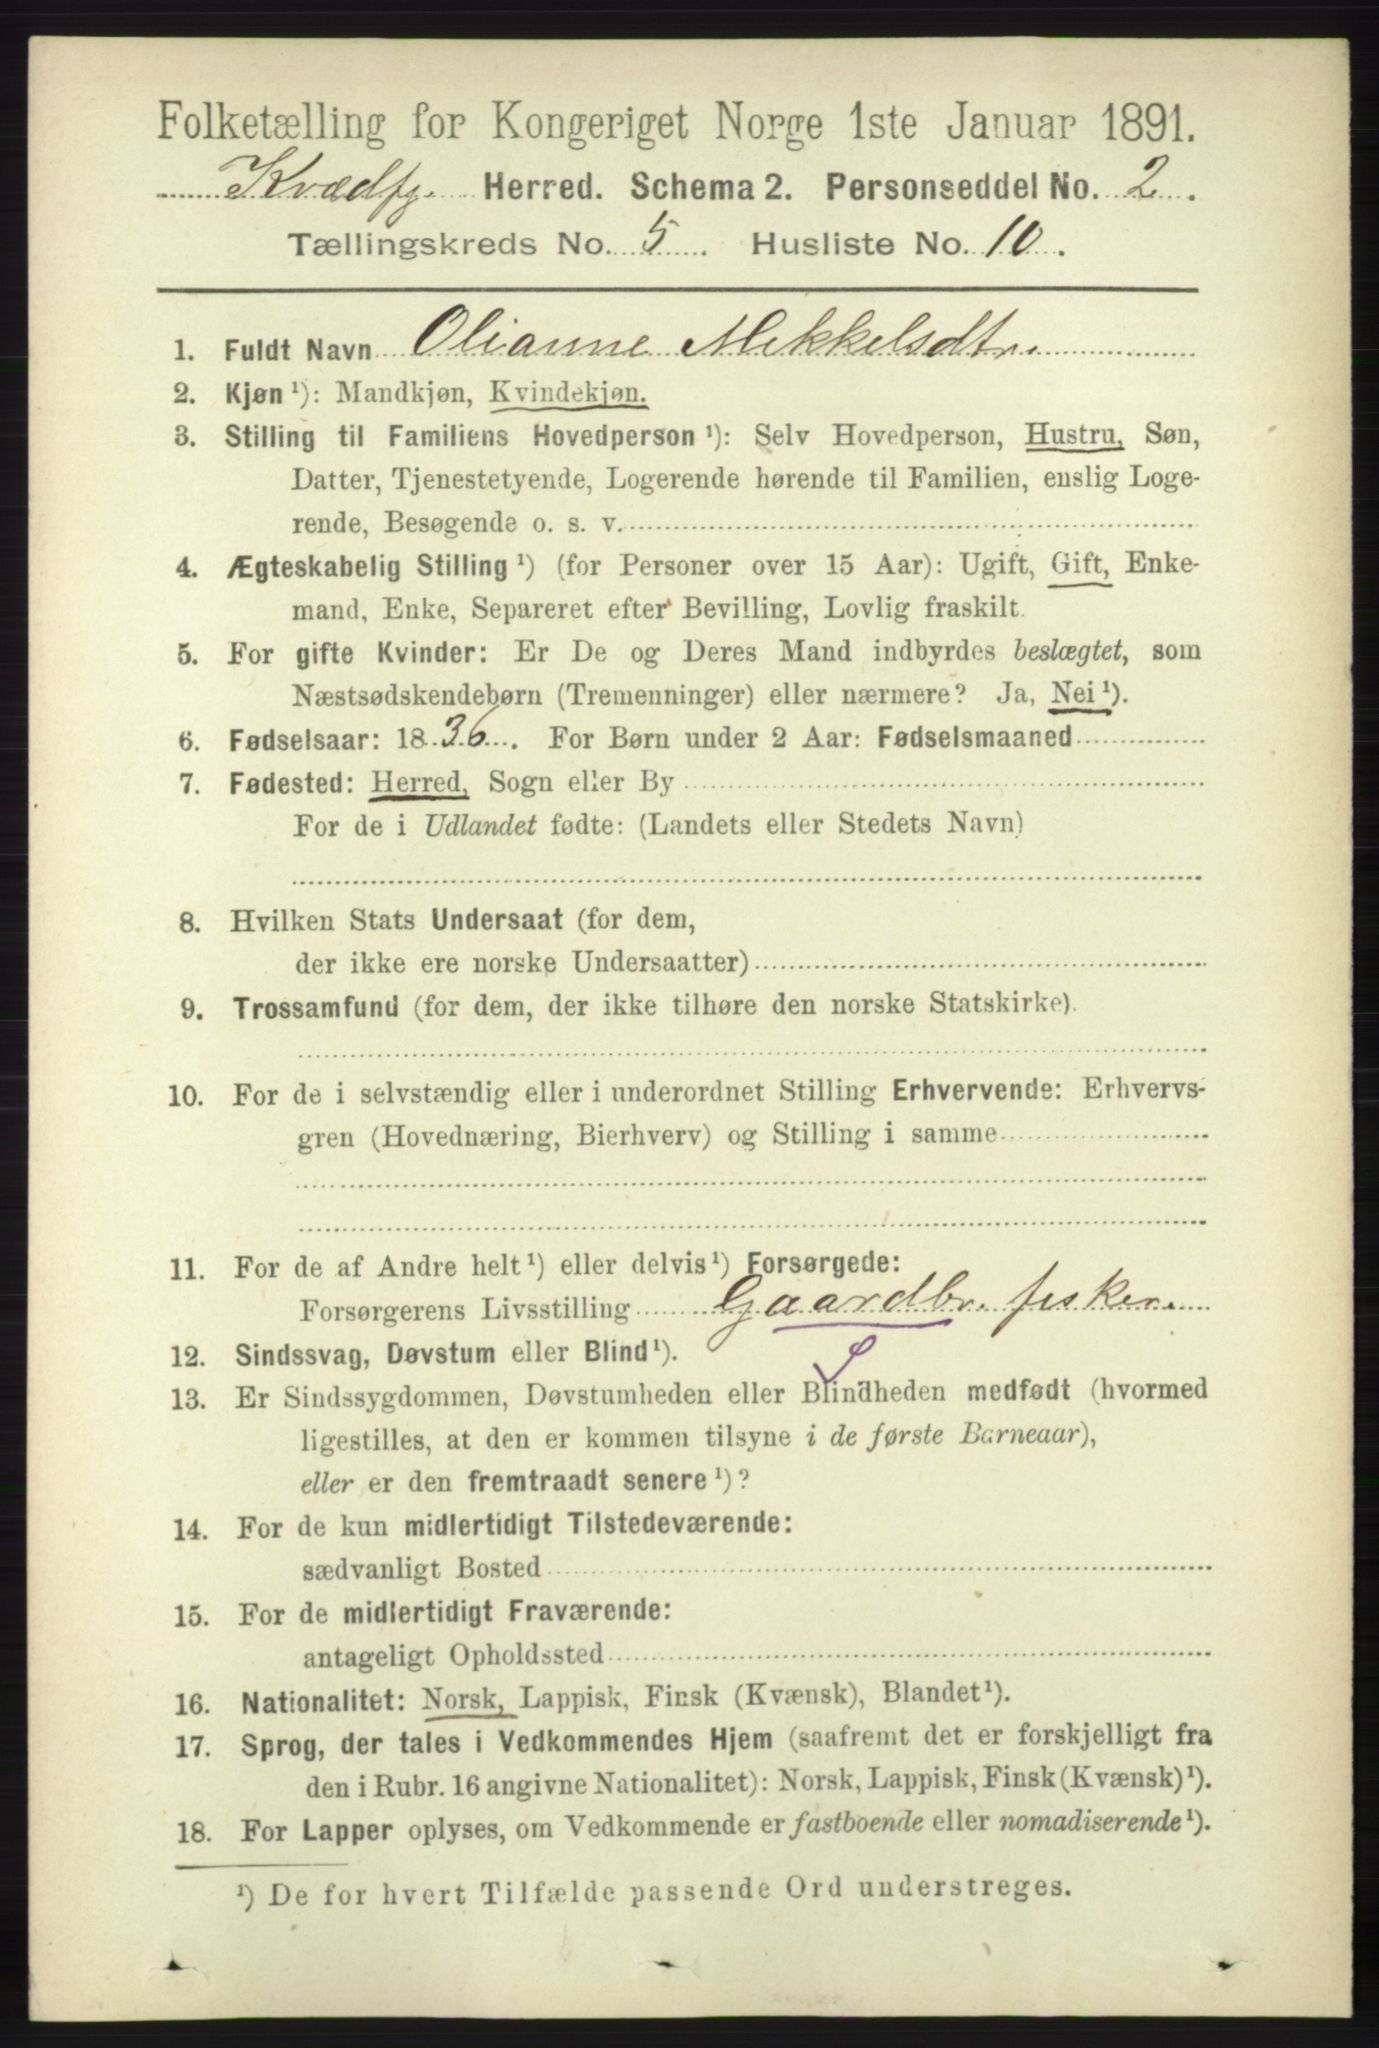 Folketælling for Kongeriget Norge 1ste Januar 1891.
Kvædfj. Herred. Schema 2. Personseddel No. 2.
Tællingskreds No. 5. Husliste No. 10.
1. Fuldt Navn Olianne Mekkelsdtr.
2. Kjøn ¹): Mandkjøn, Kvindekjøn.
3. Stilling til Familiens Hovedperson ¹): Selv Hovedperson, Hustru, Søn,
Datter, Tjenestetyende, Logerende hørende til Familien, enslig Loge-
rende, Besøgende o. s. v.
4. Ægteskabelig Stilling ¹) (for Personer over 15 Aar): Ugift, Gift, Enke-
mand, Enke, Separeret efter Bevilling, Lovlig fraskilt.
5. For gifte Kvinder: Er De og Deres Mand indbyrdes beslægtet, som
Næstsødskendebørn (Tremenninger) eller nærmere? Ja, Nei ¹).
6. Fødselsaar: 1836. For Børn under 2 Aar: Fødselsmaaned
7. Fødested: Herred, Sogn eller By
For de i Udlandet fødte: (Landets eller Stedets Navn)
8. Hvilken Stats Undersaat (for dem,
der ikke ere norske Undersaatter)
9. Trossamfund (for dem, der ikke tilhøre den norske Statskirke).
10. For de i selvstændig eller i underordnet Stilling Erhvervende: Erhvervs-
gren (Hovednæring, Bierhverv) og Stilling i samme
11. For de af Andre helt ¹) eller delvis ¹) Forsørgede:
Forsørgerens Livsstilling Gaardbr. fisker.
12. Sindssvag, Døvstum eller Blind ¹).
S
13. Er Sindssygdommen, Døvstumheden eller Blindheden medfødt (hvormed
ligestilles, at den er kommen tilsyne i de første Barneaar),
eller er den fremtraadt senere ¹)?
14. For de kun midlertidigt Tilstedeværende:
sædvanligt Bosted
15. For de midlertidigt Fraværende:
antageligt Opholdssted
16. Nationalitet: Norsk, Lappisk, Finsk (Kvænsk), Blandet ¹).
17. Sprog, der tales i Vedkommendes Hjem (saafremt det er forskjelligt fra
den i Rubr. 16 angivne Nationalitet): Norsk, Lappisk, Finsk (Kvænsk) ¹).
18. For Lapper oplyses, om Vedkommende er fastboende eller nomadiserende ¹).
¹) De for hvert Tilfælde passende Ord understreges.